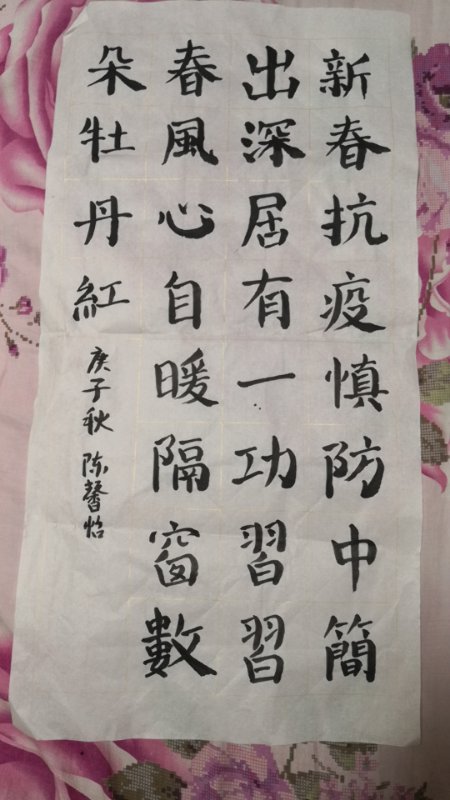 新春抗疫慎防中簡
出深居有一功習習
春風心自暖隔窗數
朵牡丹紅
庚子秋 陈馨怡